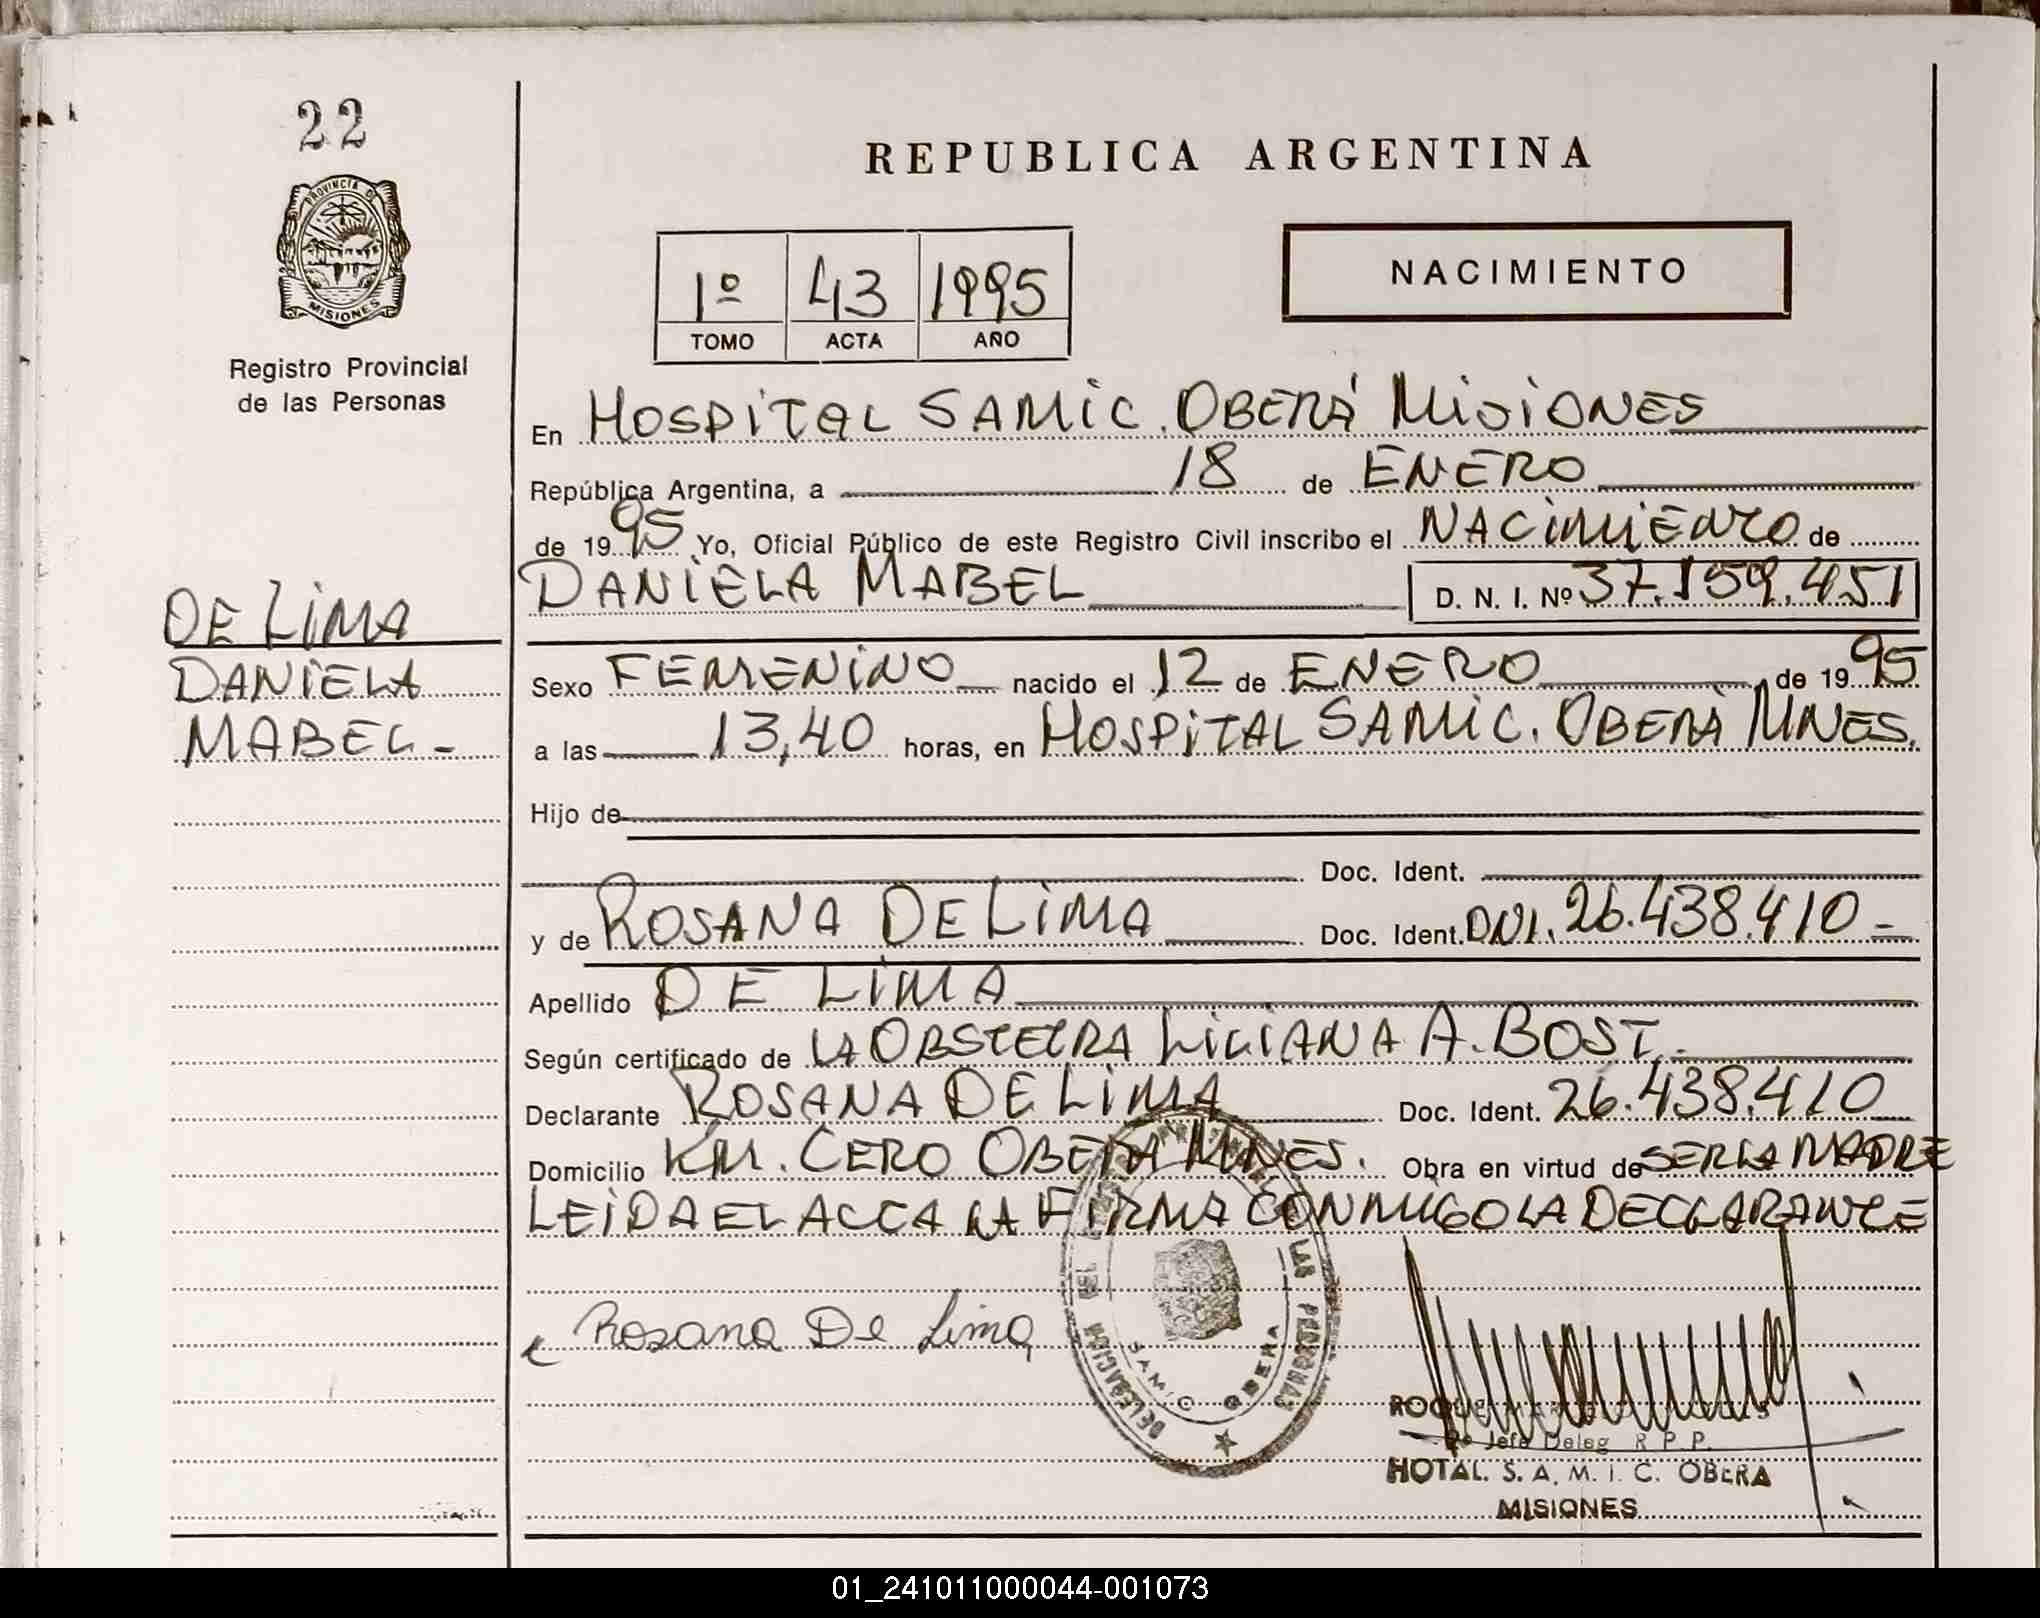 22
PROVINCIA DE
MISIONES
Registro Provincial
de las Personas
DE LIMA
DANIELA
MABEL -
REPUBLICA ARGENTINA
1º 43 1995
TOMO ACTA AÑO
NACIMIENTO
En HOSPITAL SAMIC. OBERÁ MISIONES
República Argentina, a 18 de ENERO
de 19 95 Yo, Oficial Público de este Registro Civil inscribo el NACIMIENTO de
DANIELA MABEL D. N. I. Nº 37.159.451
Sexo FEMENINO nacido el 12 de ENERO de 19 95
a las 13,40 horas, en HOSPITAL SAMIC. OBERÁ MNES.
Hijo de
Doc. Ident.
y de ROSANA DE LIMA Doc. Ident. DNI. 26.438.410 -
Apellido DE LIMA
Según certificado de LA OBSTETRA LILIANA A. BOST.-
Declarante ROSANA DE LIMA Doc. Ident. 26.438.410
Domicilio KM. CERO OBERÁ MNES. Obra en virtud de SER LA MADRE
LEIDA EL ACTA LA FIRMA CONMIGO LA DECLARANTE
Rosana De Lima
DELEGACION DEL LAS PERSONAS
SAMIC OBERA
ROQUE
2º Jefe Deleg R. P. P.
HOTAL. S. A. M. I. C. OBERA
MISIONES
01_241011000044-001073